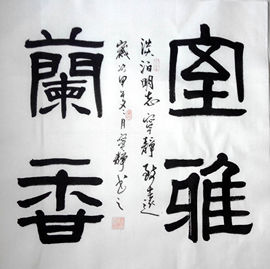 室雅
蘭香
淡泊明志寧靜致遠
歲次甲午月寧靜書之